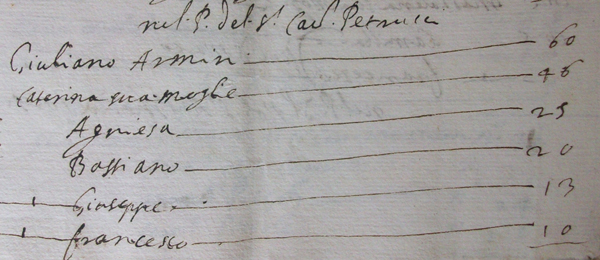 nel P. del S.r Cav.
Giuliano Armini 60
Caterina sua moglie 46
Agniesa 25
Bassiano 20
1 Giuseppe 13
1 francesco 10